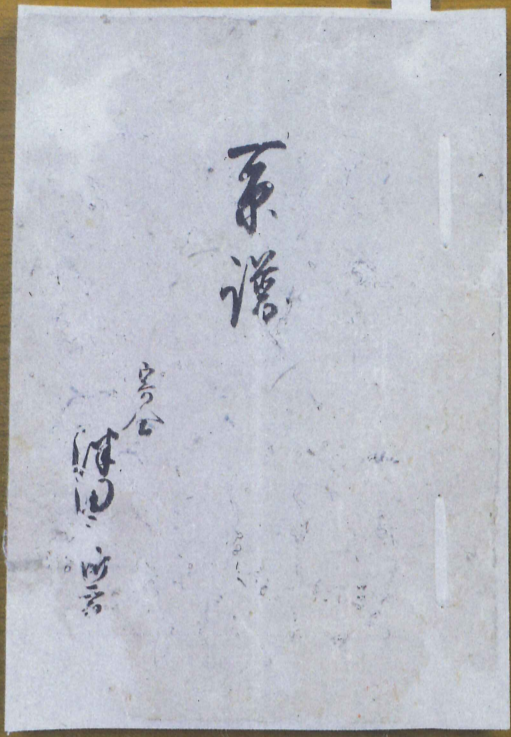 系譜
寄合
津田